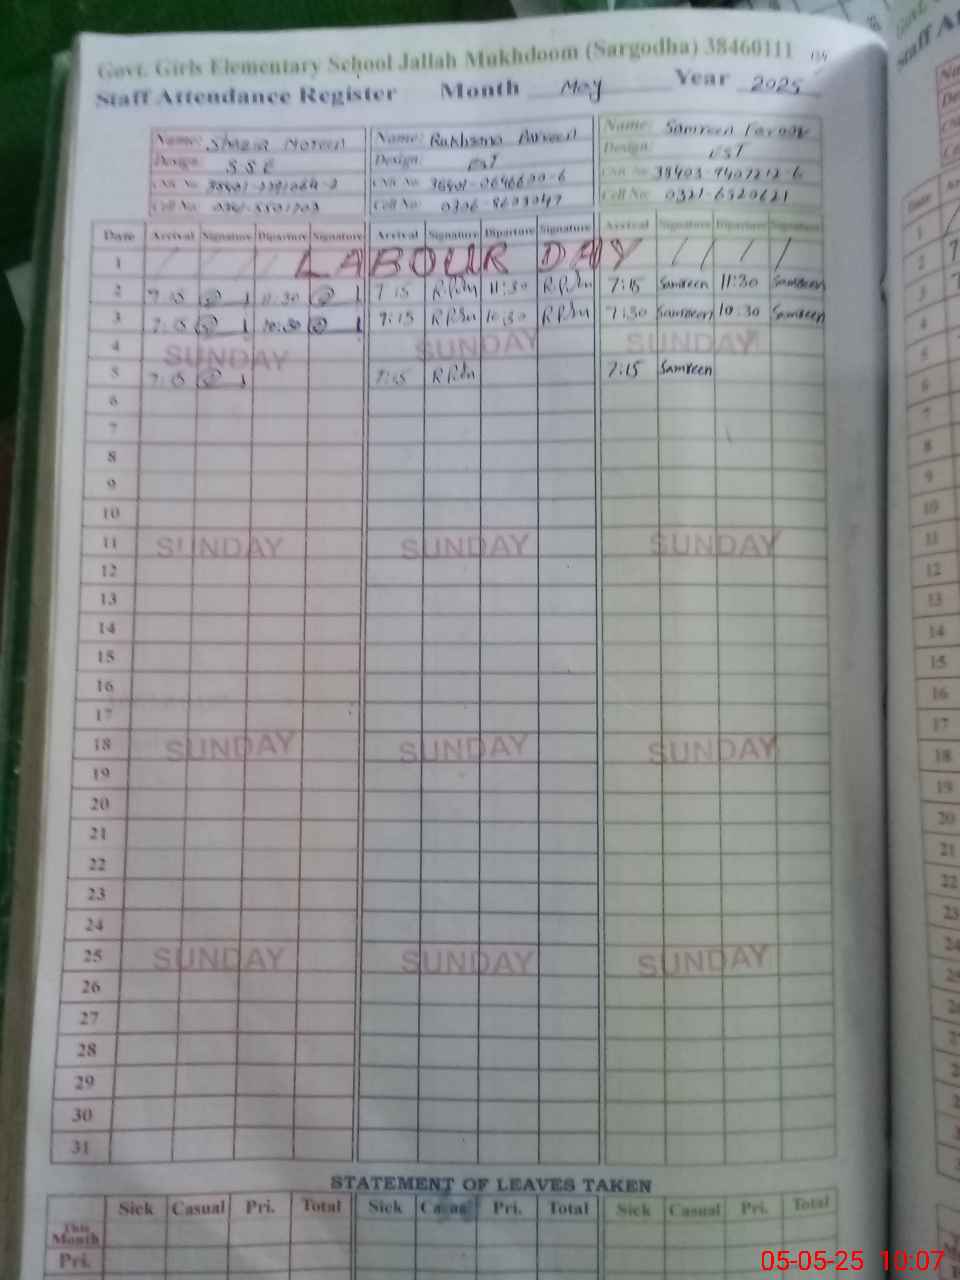 Govt. Girls Elementary School Jallah Mukhdoom (Sargodha) 38460111
Staff Attendance Register Month May Year 2025
Name: Noreen Name: Rukhsana Parveen Name: Samreen
Design: S.S.E Design: EST Design: EST
CNIC No CNIC No CNIC No
Cell No: Cell No: Cell No: 0321-6520621
Date Arrival Signature Diparture Signature Arrival Signature Diparture Signature Arrival Signature Diparture Signature
1 LABOUR DAY
2 7:15 11:30 7:15 11:30 7:15 Samreen 11:30 Samreen
3 7:15 10:30 7:15 10:30 7:30 Samreen 10:30 Samreen
4 SUNDAY SUNDAY SUNDAY
5 7:15 7:15 7:15 Samreen
6
7
8
9
10
11 SUNDAY SUNDAY SUNDAY
12
13
14
15
16
17
18 SUNDAY SUNDAY SUNDAY
19
20
21
22
23
24
25 SUNDAY SUNDAY SUNDAY
26
27
28
29
30
31
STATEMENT OF LEAVES TAKEN
Sick Casual Pri. Total Sick Casual Pri. Total Sick Casual Pri. Total
This Month
Pri.
05-05-25 10:07